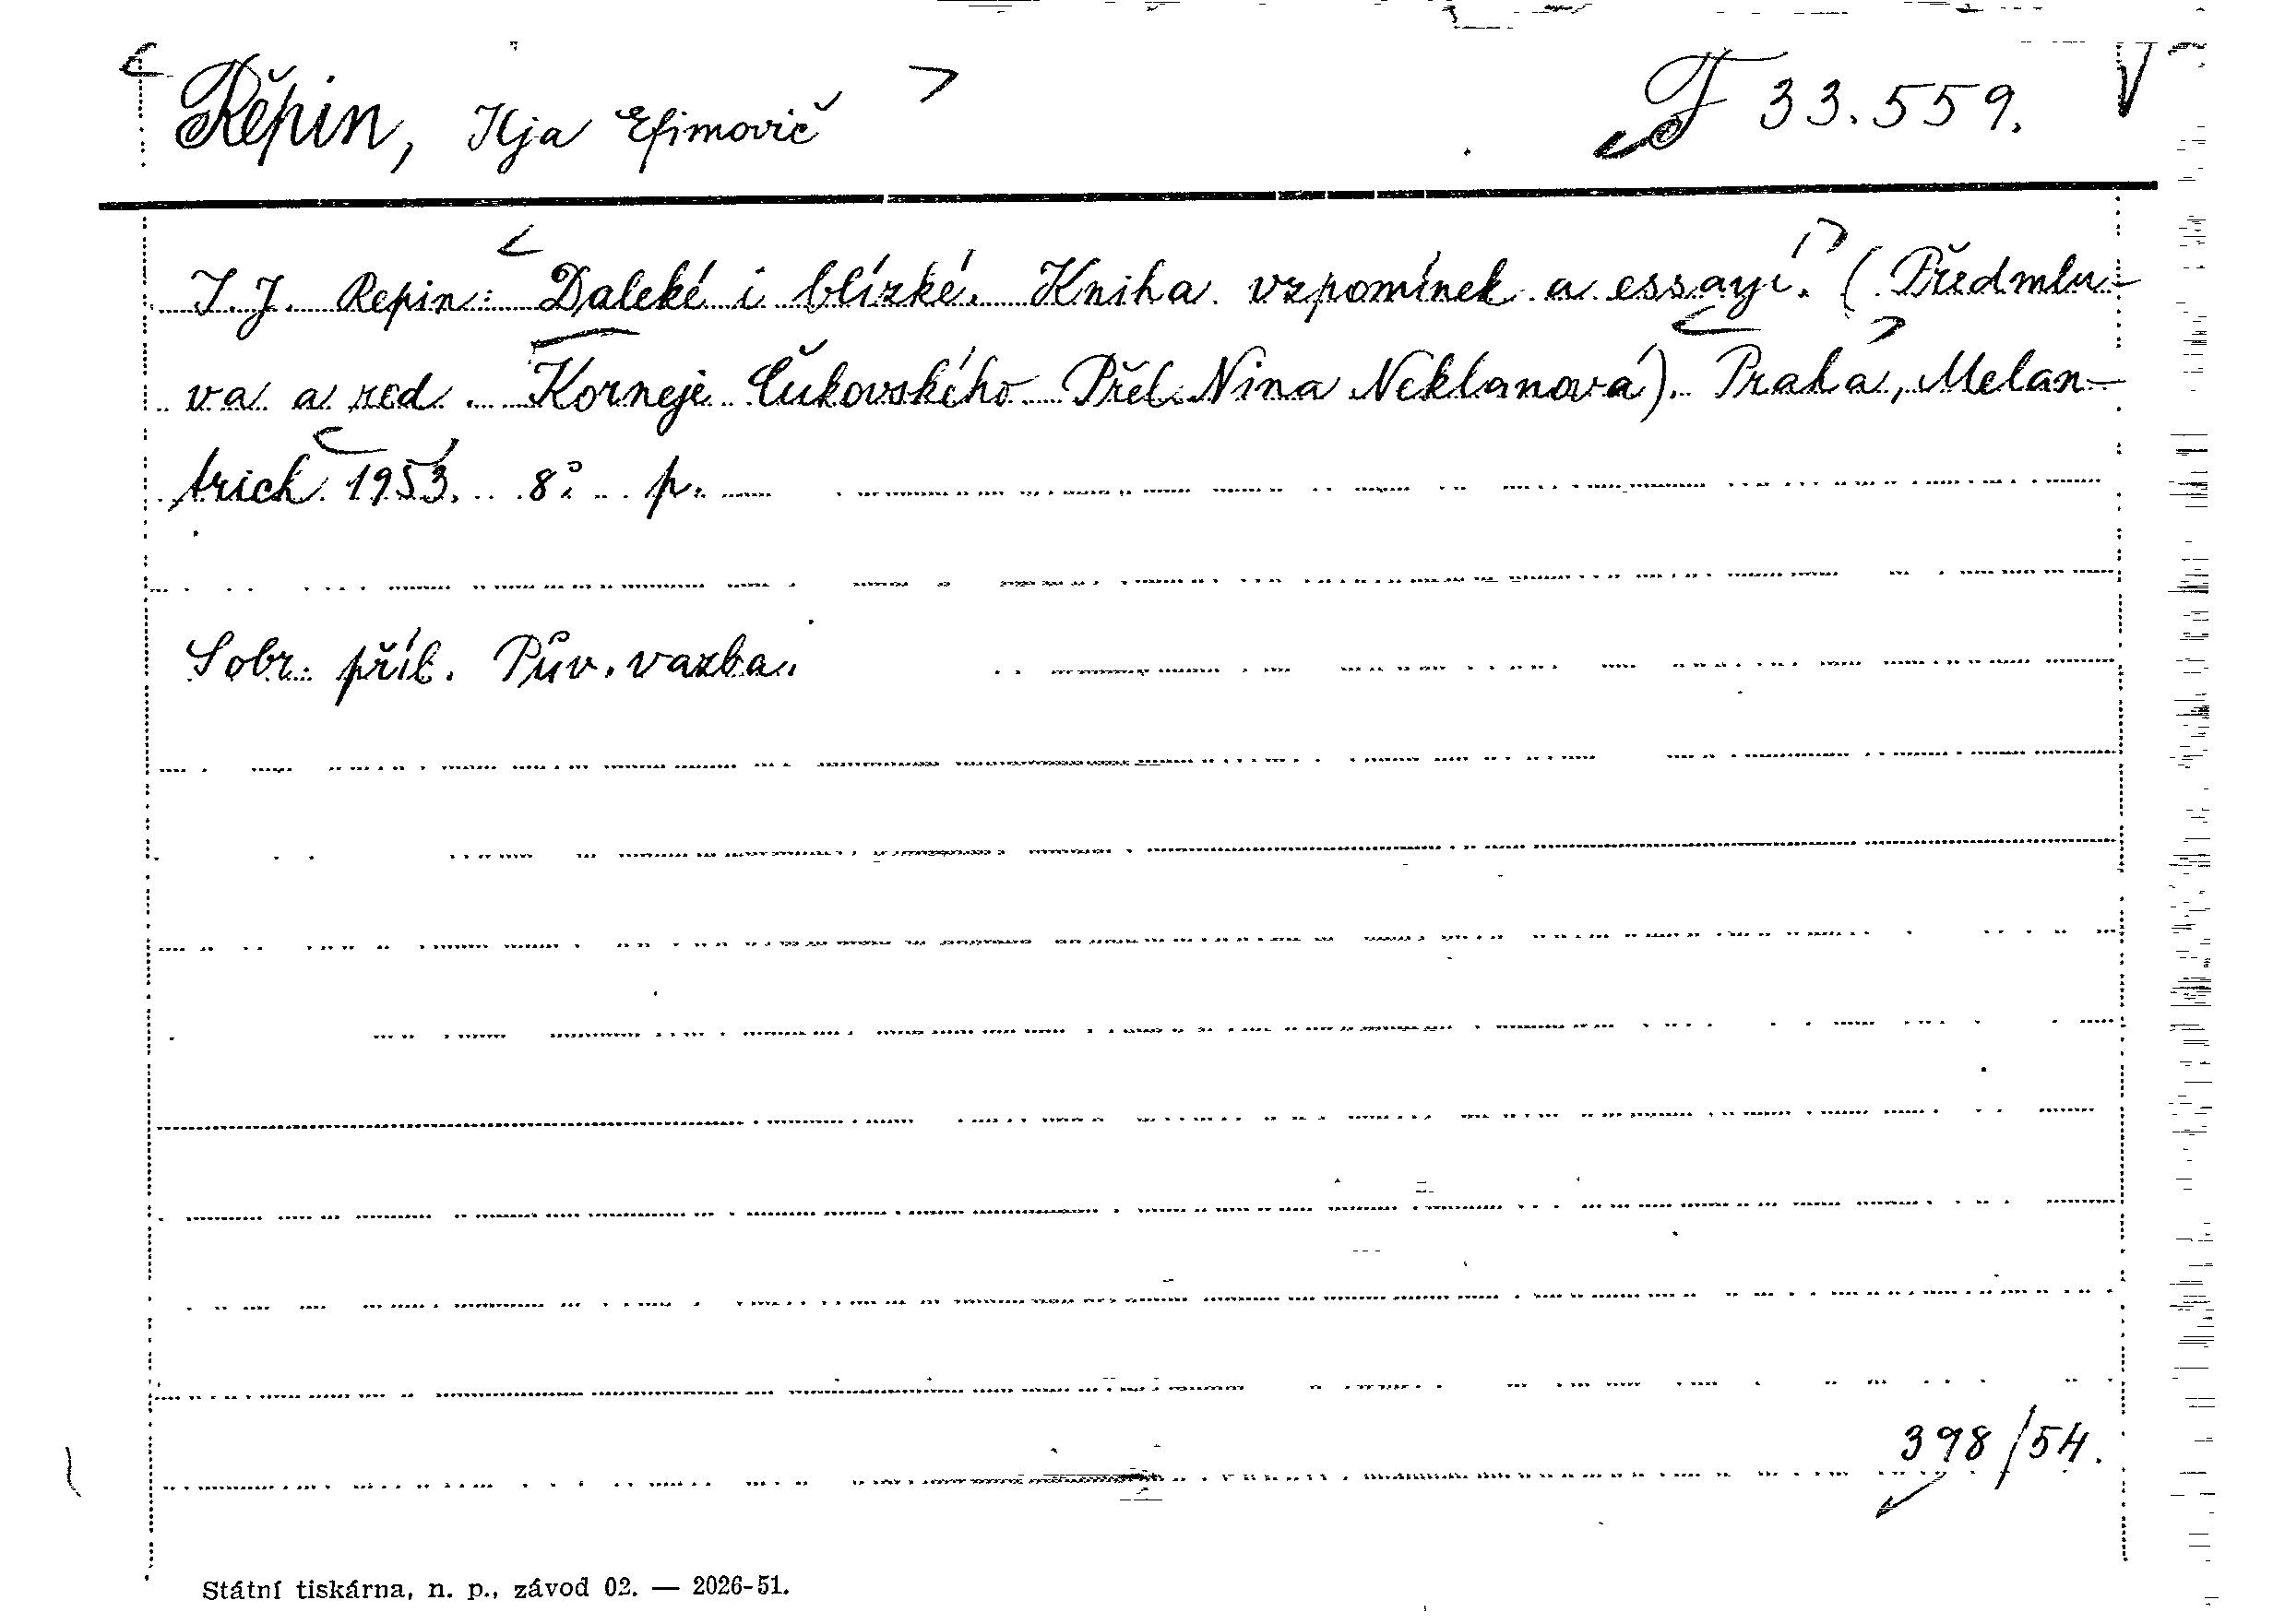 Řěpin, Ilja Efimovič F 33.559.
I. J. Repin: Daleké i blízké. Kniha vzpomínek a essayí. (Předmlu-
va a red. Korneje Čukovského Přel. Nina Neklanová). Praha, Melan-
trich 1953. 8° p.
Sobr. příl. Pův. vazba.
398/54.
Státní tiskárna, n. p., závod 02. — 2026-51.